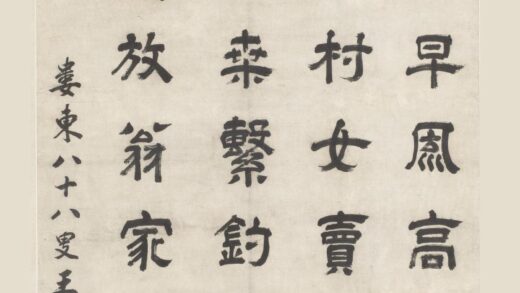 早風高
村女賣
桒繫釣
放翁家
婁東八十八叟王